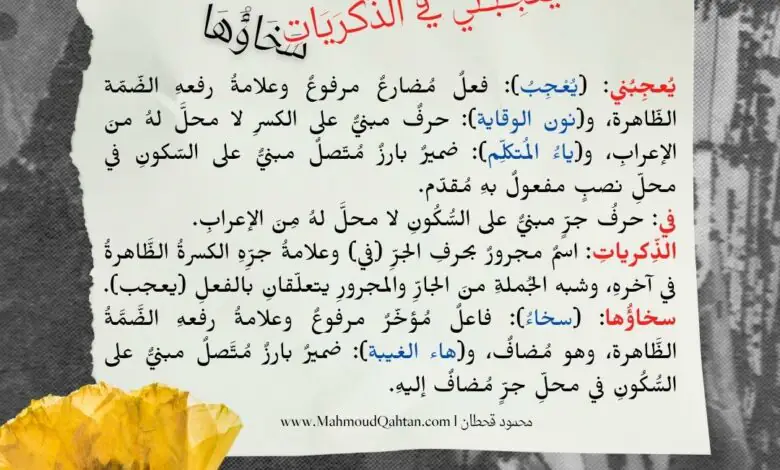 يُعجِبُني في الذِّكرَيَاتِ سَخَاؤُهَا
يُعجِبُني: (يُعْجِبُ): فعلٌ مُضارعٌ مرفوعٌ وعلامةُ رفعهِ الضَّمّة
الظَّاهرة، و(نون الوقاية): حرفٌ مبنيٌّ على الكسرِ لا محلَّ لهُ منَ
الإعرابِ، و(ياءُ المُتكلِّم): ضميرٌ بارزٌ مُتَّصلٌ مبنيٌّ على السّكونِ في
محلِّ نصبٍ مفعولٌ بهِ مُقدّم.
في: حرفُ جرٍّ مبنيٌّ على السُّكُونِ لا محلَّ لهُ مِنَ الإعرابِ.
الذِّكرياتِ: اسمٌ مجرورٌ بحرفِ الجرّ (في) وعلامةُ جرّهِ الكسرةُ الظَّاهرةُ
في آخرهِ، وشبه الجُملةِ منَ الجارّ والمجرورِ يتعلّقانِ بالفعلِ (يعجب).
سخاؤُها: (سخاءُ): فاعلٌ مُؤخّرٌ مرفوعٌ وعلامةُ رفعهِ الضَّمَّةُ
الظَّاهرة، وهو مُضافٌ، و(هاء الغيبة): ضميرٌ بارزٌ مُتَّصلٌ مبنيٌّ على
السُّكُونِ في محلِّ جرٍّ مُضافٌ إليهِ.
محمود قحطان | www.MahmoudQahtan.com